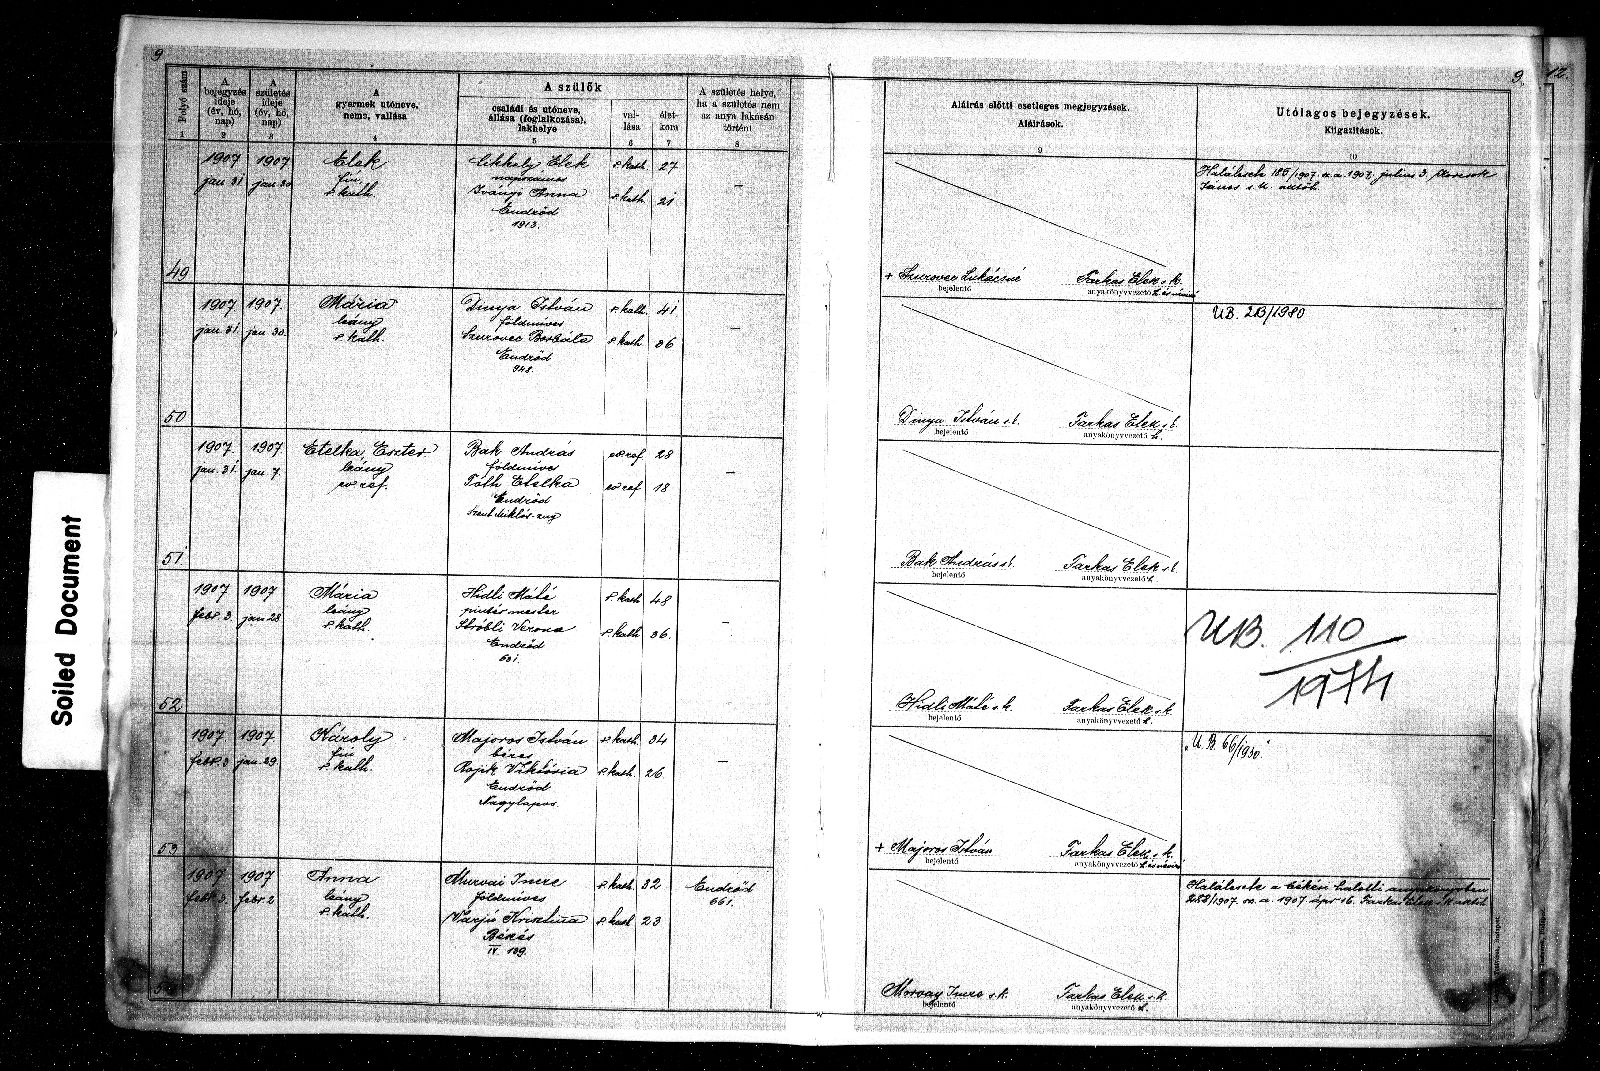 9
9.
12.
Soiled Document
Folyó szám
A bejegyzés ideje (év, hó, nap)
A születés ideje (év, hó, nap)
A gyermek utóneve, neme, vallása
A szülők
családi és utóneve, állása (foglalkozása), lakhelye
vallása
életkora
A születés helye, ha a születés nem az anya lakásán történt
Aláírás előtti esetleges megjegyzések.
Aláírások.
Utólagos bejegyzések.
Kiigazítások.
1 2 3 4 5 6 7 8 9 10
49
1907 jan 31
1907 jan. 30
Elek
fiu
r. kath.
Elek
napszámos
Iványi Anna
Endrőd
1913.
r. kath. 27
r. kath 21
—
+ Szurovec Lukácsné
bejelentő
Farkas Elek s. k.
anyakönyvvezető
Halálesete 186/1907. a. a. 1907. julius 3.
János s. k. aután
50
1907 jan 31.
1907. jan 30.
Mária
leány
r. kath.
Dinya István
földmives
Szurovec Borbála
Endrőd
948.
r. kath. 41
r. kath 36
—
Dinya István s. k.
bejelentő
Farkas Elek s. k.
anyakönyvvezető h.
UB. 213/1980
51
1907. jan. 31.
1907 jan 7.
Etelka, Eszter
leány
ev ref.
Bak András
földmives
Tóth Etelka
Endrőd
Szent Miklós-zug
ev ref 28
ev ref 18
—
Bak András s. k.
bejelentő
Farkas Elek s. k.
anyakönyvvezető h.
52
1907 febr. 3.
1907 jan 28
Mária
leány
r. kath.
Hidli Máté
pintér mester
Ströbli Verona
Endrőd
631.
r. kath 48
r. kath 36.
—
Hidli Máté s. k.
bejelentő
Farkas Elek s. k.
anyakönyvvezető h.
UB. 110/1974
53
1907 febr. 3
1907 jan. 29
Károly
fiu
r. kath.
Majoros István
béres
Rojik Viktória
Endrőd
Nagylapos.
r. kath 34
r. kath. 26
—
+ Majoros István
bejelentő
Farkas Elek s. k.
anyakönyvvezető
"U. B. 66/1930."
1907 febr. 3.
1907 febr. 2
Anna
leány
r. kath.
Murvai Imre
földmives
Varjú Krisztina
Békés
IV 139.
r. kath. 32
r. kath 23
Endrőd
661.
Morvay Imre s. k.
bejelentő
Farkas Elek s. k.
anyakönyvvezető h.
Halálesete a békési halotti anyakönyvben
288/1907. a. a. 1907. ápr 16. Farkas Elek s. k.